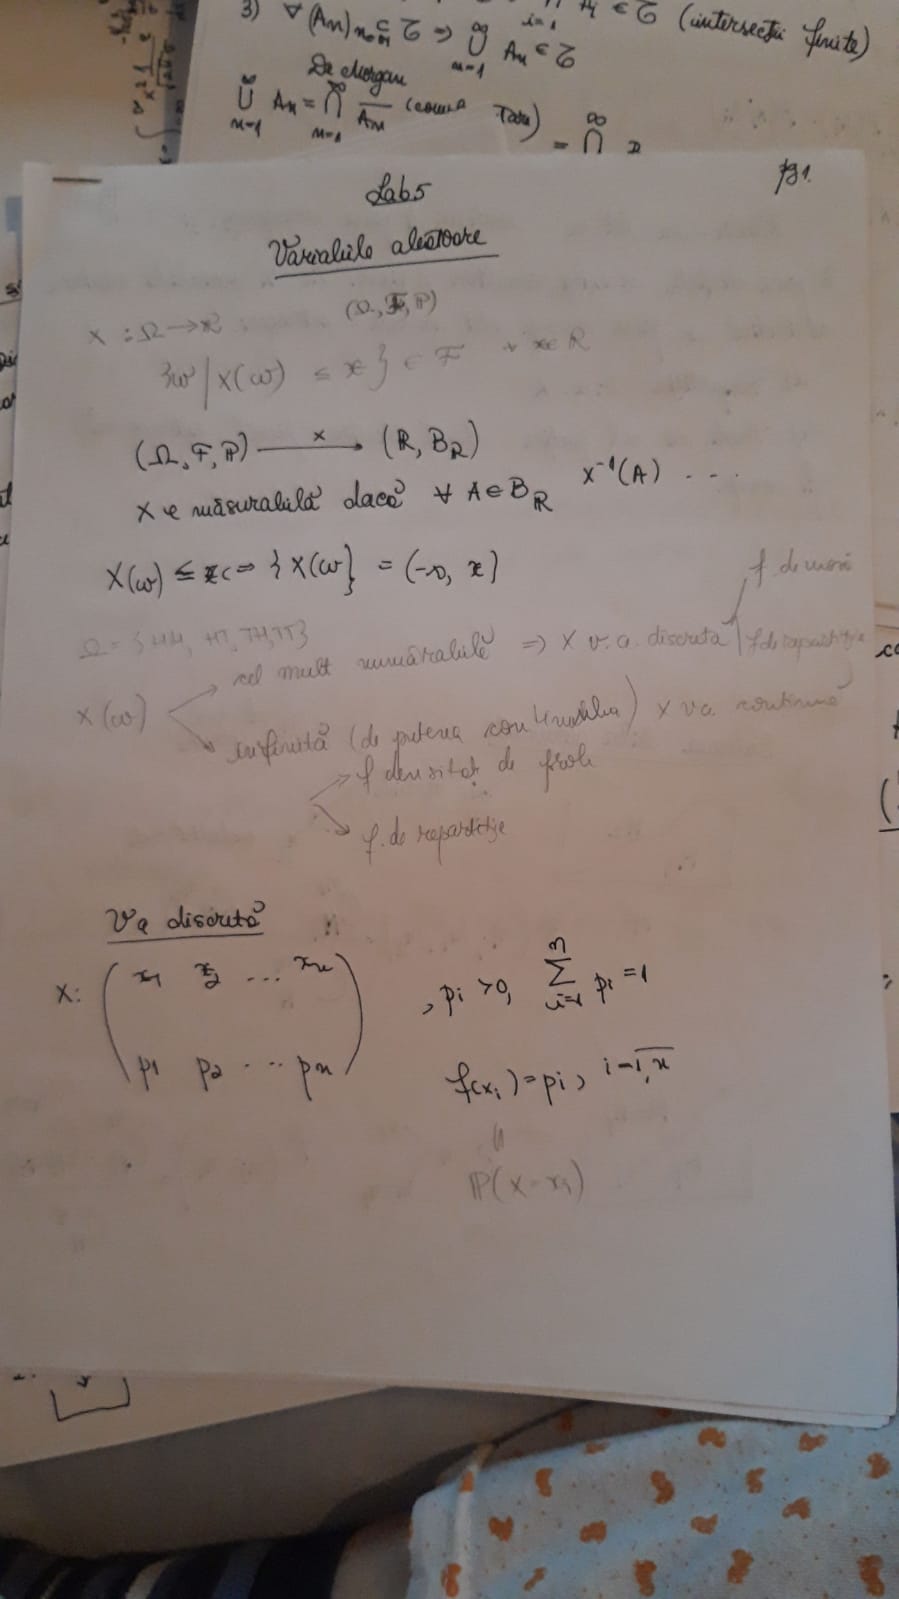 3) ∀ (An)n∈ℕ ⊆ 𝒯 ⇒ ∞⋃n=1 An ∈ 𝒯
i=1 Ai ∈ 𝒯 (intersecții finite)
De Morgan
∞⋃n=1 An = ∞⋂n=1 An (comu
= ∞⋂
Lab 5
pg 1.
Variabile aleatoare
(Ω, F, ℙ)
X : Ω → R
{ω | X(ω) ≤ x} ∈ F ∀ x∈R
(Ω, F, ℙ) —X→ (R, Bℝ)
X e măsurabilă dacă ∀ A∈Bℝ X⁻¹(A) ...
X(ω) ≤ x ⇔ {X(ω} = (-∞, x]
f de masă
Ω = {HH, HT, TH, TT}
cel mult numărabilă ⇒ X v.a. discretă | f de repartiție
X(ω)
infinită (de puterea continuului) X va continuă
f densitat de prob
f. de repartiție
Va discretă
X: ( x1 x2 ... xn ) , pi >0, n∑i=1 pi =1
( p1 p2 ... pn ) f(xi)=pi, i=1,n
ℙ(X=xi)